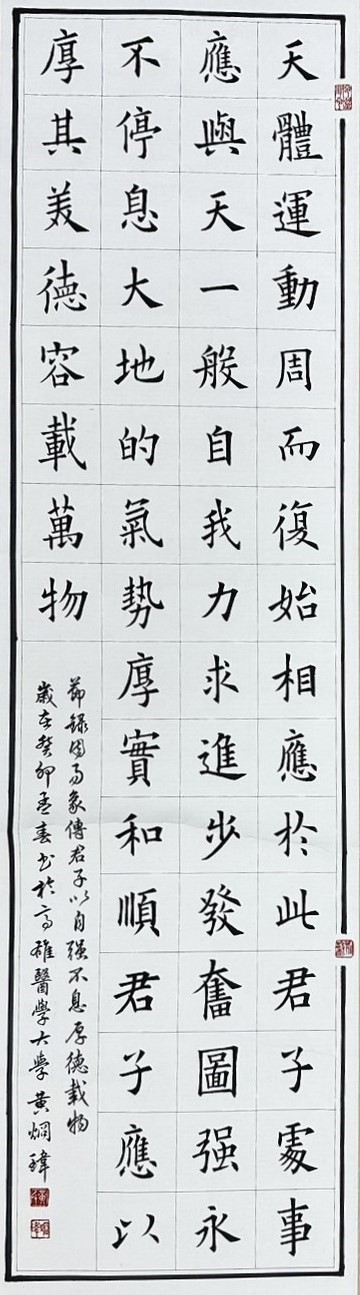 天體運動周而復始相應於此君子處事
應與天一般自我力求進步發奮圖强永
不停息大地的氣勢厚實和順君子應以
厚其美德容載萬物
節錄周易象傳君子以自强不息厚德載物
歲在癸卯孟春書於高雄醫學大學黃炯瑋